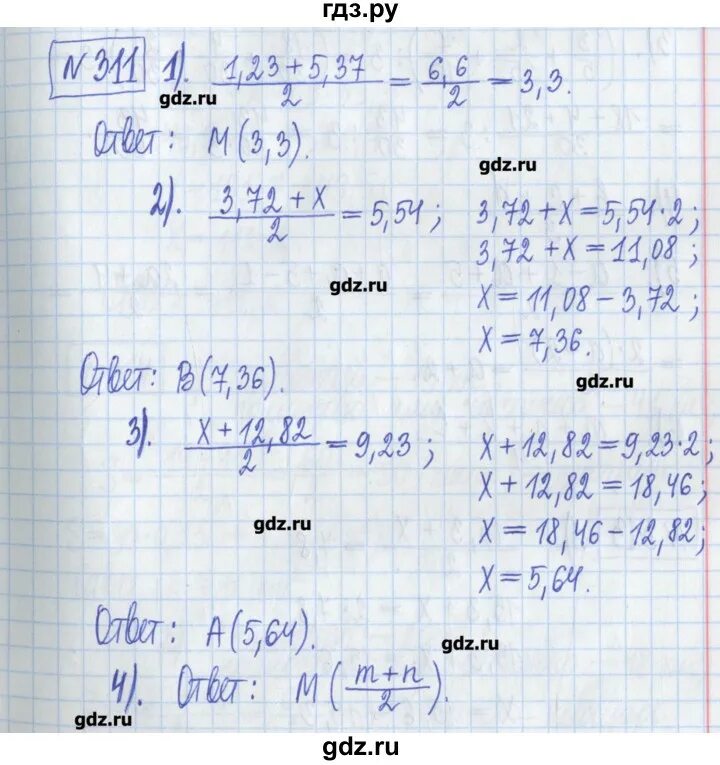 гдз.ру
№ 311 1). (1,23 + 5,37)/2 = 6,6/2 = 3,3.
gdz.ru
Ответ: M(3,3).
gdz.ru
2). (3,72 + x)/2 = 5,54; 3,72 + x = 5,54·2;
3,72 + x = 11,08;
gdz.ru
x = 11,08 - 3,72;
x = 7,36.
Ответ: B(7,36).
gdz.ru
3). (x + 12,82)/2 = 9,23; x + 12,82 = 9,23·2;
x + 12,82 = 18,46;
gdz.ru
x = 18,46 - 12,82;
x = 5,64.
Ответ: A(5,64).
gdz.ru
4). Ответ: M((m+n)/2).
gdz.ru
gdz.ru